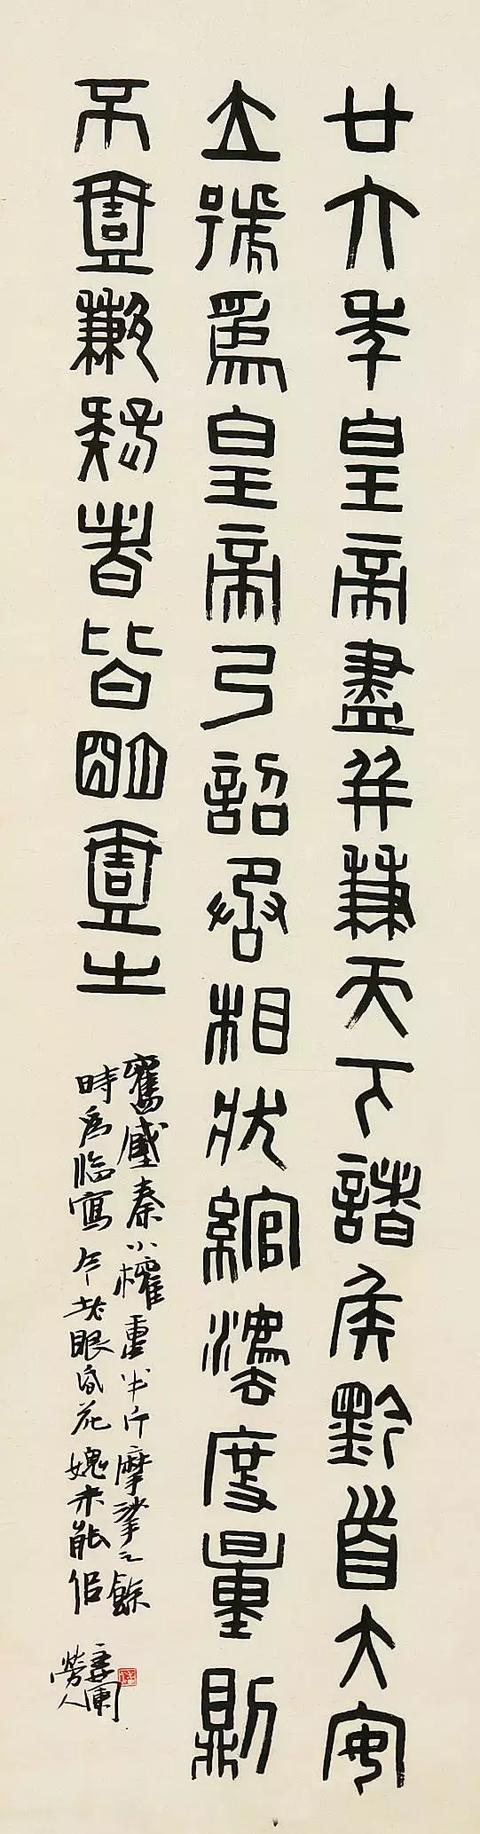 廿六年皇帝盡并兼天下諸侯黔首大安
立號爲皇帝乃詔丞相狀綰灋度量則
不壹歉疑者皆明壹之
舊藏秦小權重半斤摩挲之餘
時爲臨寫今老眼昏花媿未能佀
勞人